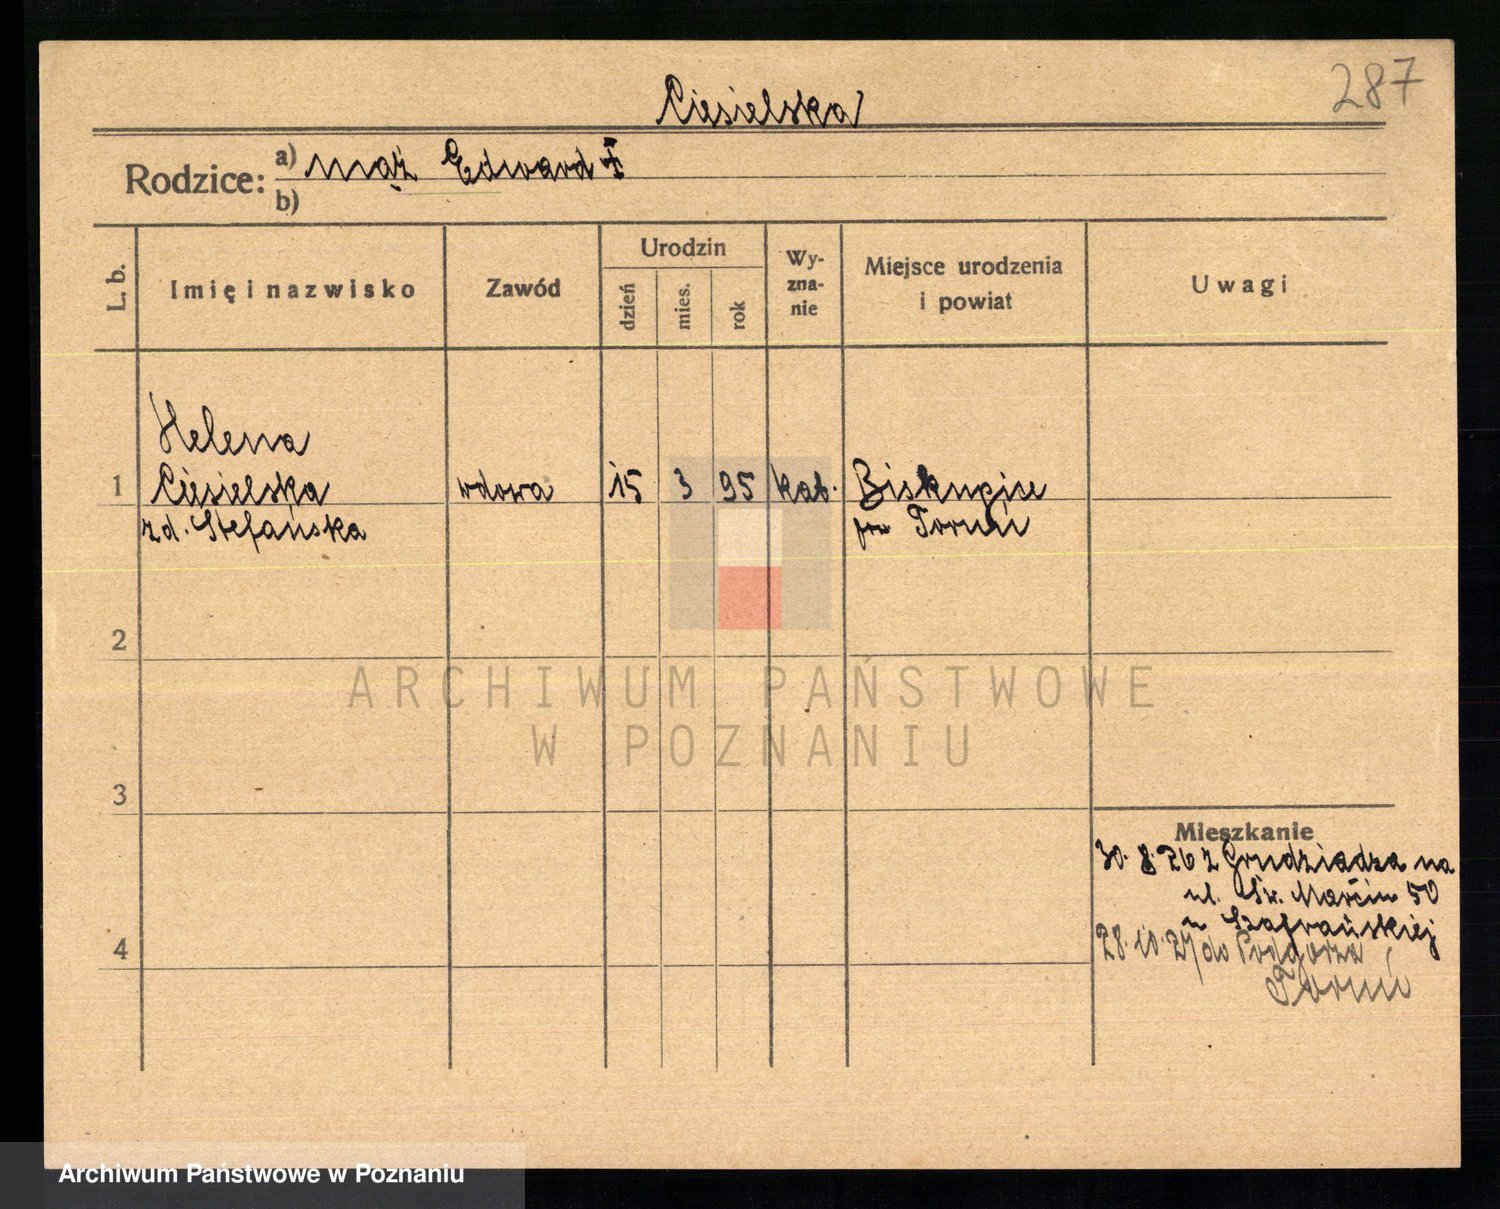 287
Ciesielska
Rodzice:
a) mąż Edward †
b)
L. b.
Imię i nazwisko
Zawód
Urodzin
dzień
mies.
rok
Wy-
zna-
nie
Miejsce urodzenia
i powiat
Uwagi
Helena
1 Ciesielska wdowa 15 3 95 kat. Biskupice
zd. Stefańska
Toruń
2
ARCHIWUM PAŃSTWOWE
W POZNANIU
3
Mieszkanie
30. 8. 26 z Grudziądza na
ul. Św. Marcin 50
u Szafrańskiej
4
28. 10. 27 do Podgórza
Toruń
Archiwum Państwowe w Poznaniu